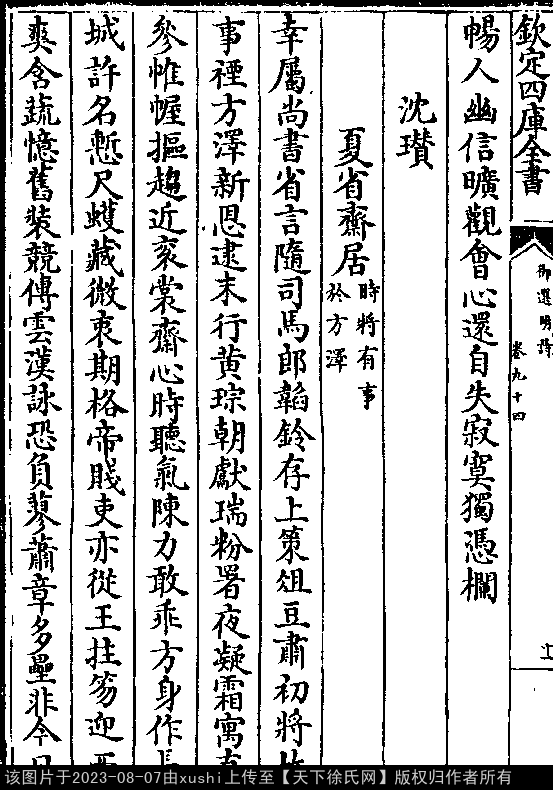 欽定四庫全書
御選明詩
卷九十四
上
暢人幽信曠觀會心還自失寂寞獨憑欄
沈瓚
夏省齋居時將有事於方澤
幸屬尚書省言隨司馬郎韜鈴存上策俎豆肅初將
事禋方澤新恩逮末行黃琮朝獻瑞粉署夜凝霜寓
參惟幄摳趨近衮裳齋心時聽氣陳力敢乖方身作
城許名慙尺蠖藏微衷期格帝賤吏亦從王拄笏迎
爽含蔬憶舊裝競傳雲漢詠恐負蓼蕭章多壘非今
该图片于2023-08-07由xushi上传至【天下徐氏网】版权归作者所有